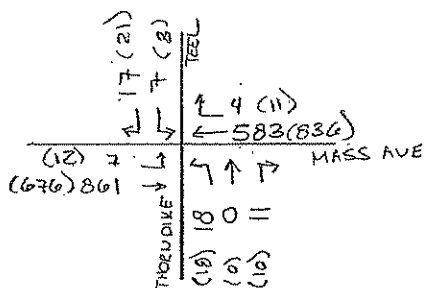 17 (21)
7 (8)
TEEL
4 (11)
583(836)
MASS AVE
(12) 7
(676) 861
THORNDIKE
18 0 11
(18) (0) (10)